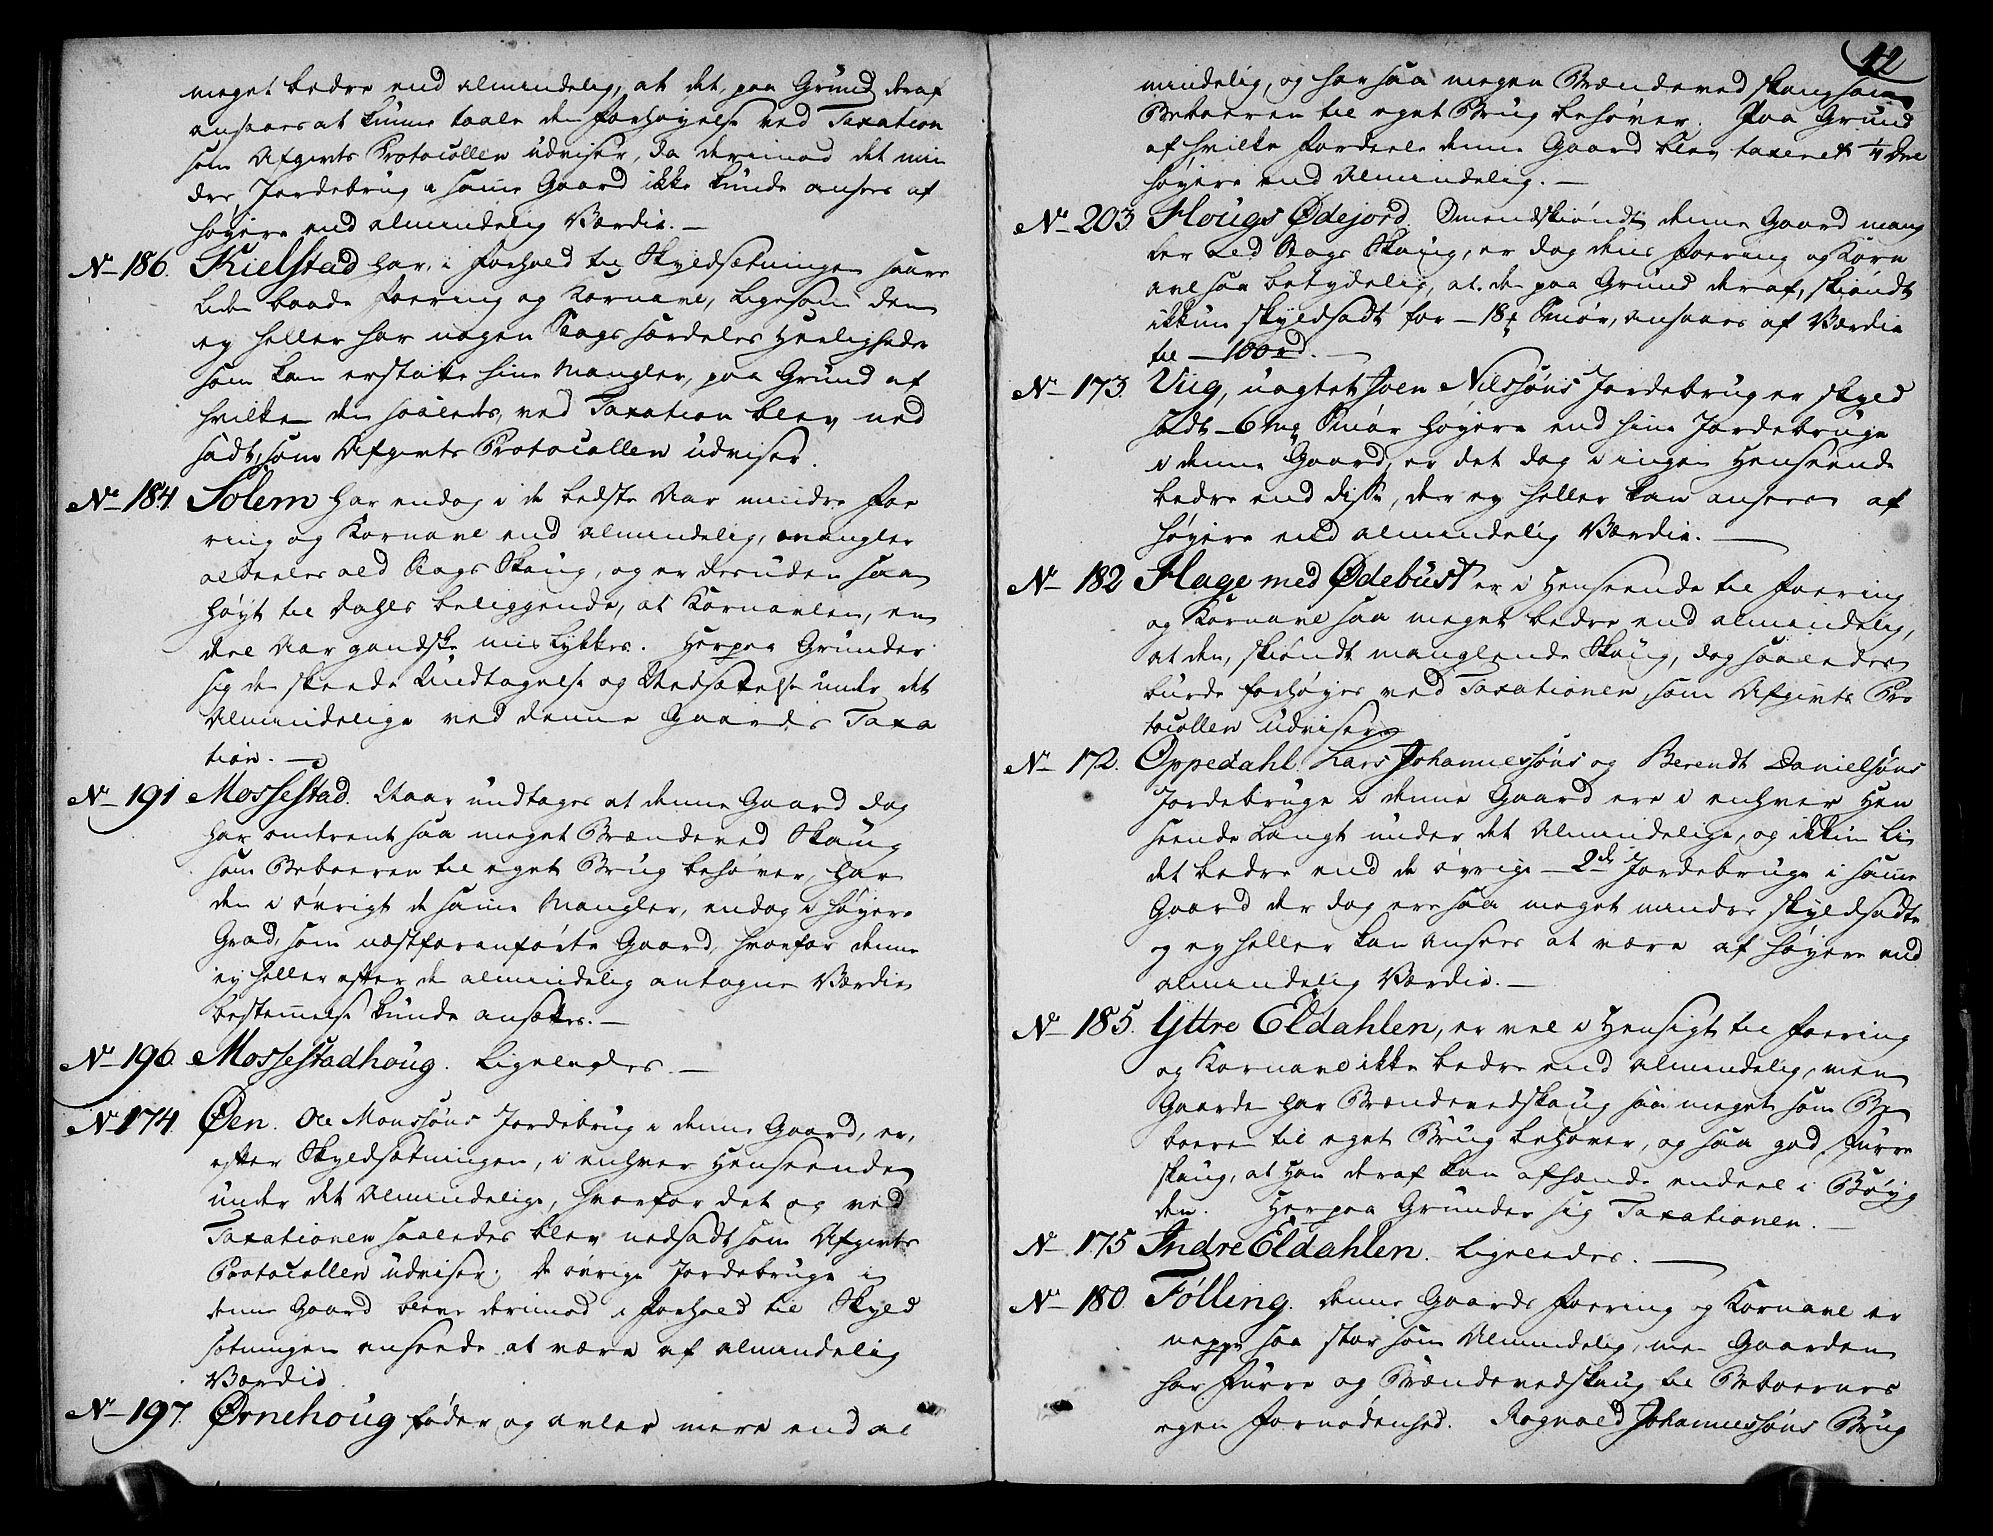 meget bedre end almindelig, at det, paa Grund deraf
ansaaes at kunne taale den Forhøyelse ved Taxation
som Afgivts Protocollen udviser, da derimod det min
dre Jordebrug i samme Gaard ikke kunde ansees af
høyere end almindelig Værdie. —
No 186. Kielstad har, i Forhold til Skyldsætningen saare
liden baade Foering og Kornavl, ligesom den
ey heller har nogen Slags særdeles Herligheder
som kan erstatte sine Mangler, paa Grund af
hvilke den saaledes, ved Taxation blev ned
sadt, som Afgivts Protocollen udviser.
No 184. Solem har endog i de bedste Aar mindre Foe
ring og Kornavl end almindelig, mangler
aldeeles ald Slags Skoug, og er desuden saa
høyt til Dahls beliggende, at Kornavlen, en
deel Aar gandske mislykkes. Herpaa Grunder
sig den skeede Undtagelse og Nedsættelse under det
Almindelige ved denne Gaards Taxa
tion. —
No 191 Mossestad. Naar undtages at denne Gaard dog
har omtrent saa meget Brændeved Skoug
som Beboeren til eget Brug behøver, har
den i øvrigt de samme Mangler, endog i høyere
Grad, som næstforanførte Gaard, hvorfor denne
ey heller efter den almindelig antagne Værdies
bestemmelse kunde ansættes. —
No 196. Mossestadhoug. Ligeledes —
No 174. Øen. Ole Monssøns Jordebrug i denne Gaard, er,
efter Skyldsætningen, i enhver Henseende
under det Almindelige, hvorfor det og ved
Taxationen saaledes blev nedsadt som Afgivts
Protocollen udviser; de øvrige Jordebruge i
denne Gaard bleve derimod i Forhold til Skyld
sætningen anseede at være af almindelig
Værdie.
No 197. Ørnehoug føder og avler mere end al
42
mindelig, og har saa megen Brændeved Skoug som
Beboeren til eget Brug behøver. Paa Grund
af hvilke Fordeele denne Gaard blev taxeret 1/4 Deel
høyere end Almindelig. —
No 203. Hougs Ødejord Omendskiøndt denne Gaard mang
ler ald Slags Skoug, er dog dens Foering og Korn
avl saa betydelig, at den paa Grund deraf, skiøndt
ikkun skyldsadt for — 18 Smør, ansaaes af Værdie
til — 100 rd. —
No 173. Viig, uagtet Joen Nilssøns Jordebrug er skyld
sadt — 6 mrk Smør høyere end sine Jordebruge
i denne Gaard, er det dog i ingen Henseende
bedre end disse, der ey heller kan ansees af
høyere end almindelig Værdie. —
No 182 Hage med Ødebust er i Henseende til Foering
og Kornavl saa meget bedre end almindelig,
at den, skiøndt manglende Skoug, dog saaledes
burde forhøyes ved Taxationen, som Afgivts Pro
tocollen udviser.
No 172. Oppedahl. Lars Johannessøns og Berendt Danielsøns
Jordebruge i denne Gaard ere i enhver Hen
seende langt under det Almindelige, og ikkun li
det bedre end de øvrige — 2de Jordebruge i samme
Gaard der dog ere saa meget mindre skyldsadte
og ey heller kan ansees at være af høyere end
almindelig Værdie. —
No 185. Yttre Eldahlen, er vel i Hensigt til Foering
og Kornavl ikke bedre end almindelig, men
Gaarden har Brændevedskoug saa meget som Be
boeren til eget Brug behøver, og saa god Furre
skoug, at han deraf kan afhænde endeel i Bøyg
den. Herpaa Grunder sig Taxationen. —
No 175 Indre Eldahlen. Ligeledes. —
No 180. Følling. denne Gaards Foering og Kornavl er
neppe saa stor som Almindelig, men Gaarden
har Furre og Brændevedskoug til Beboernes
egen Fornødenhed. Rognald Johannessøns Brug